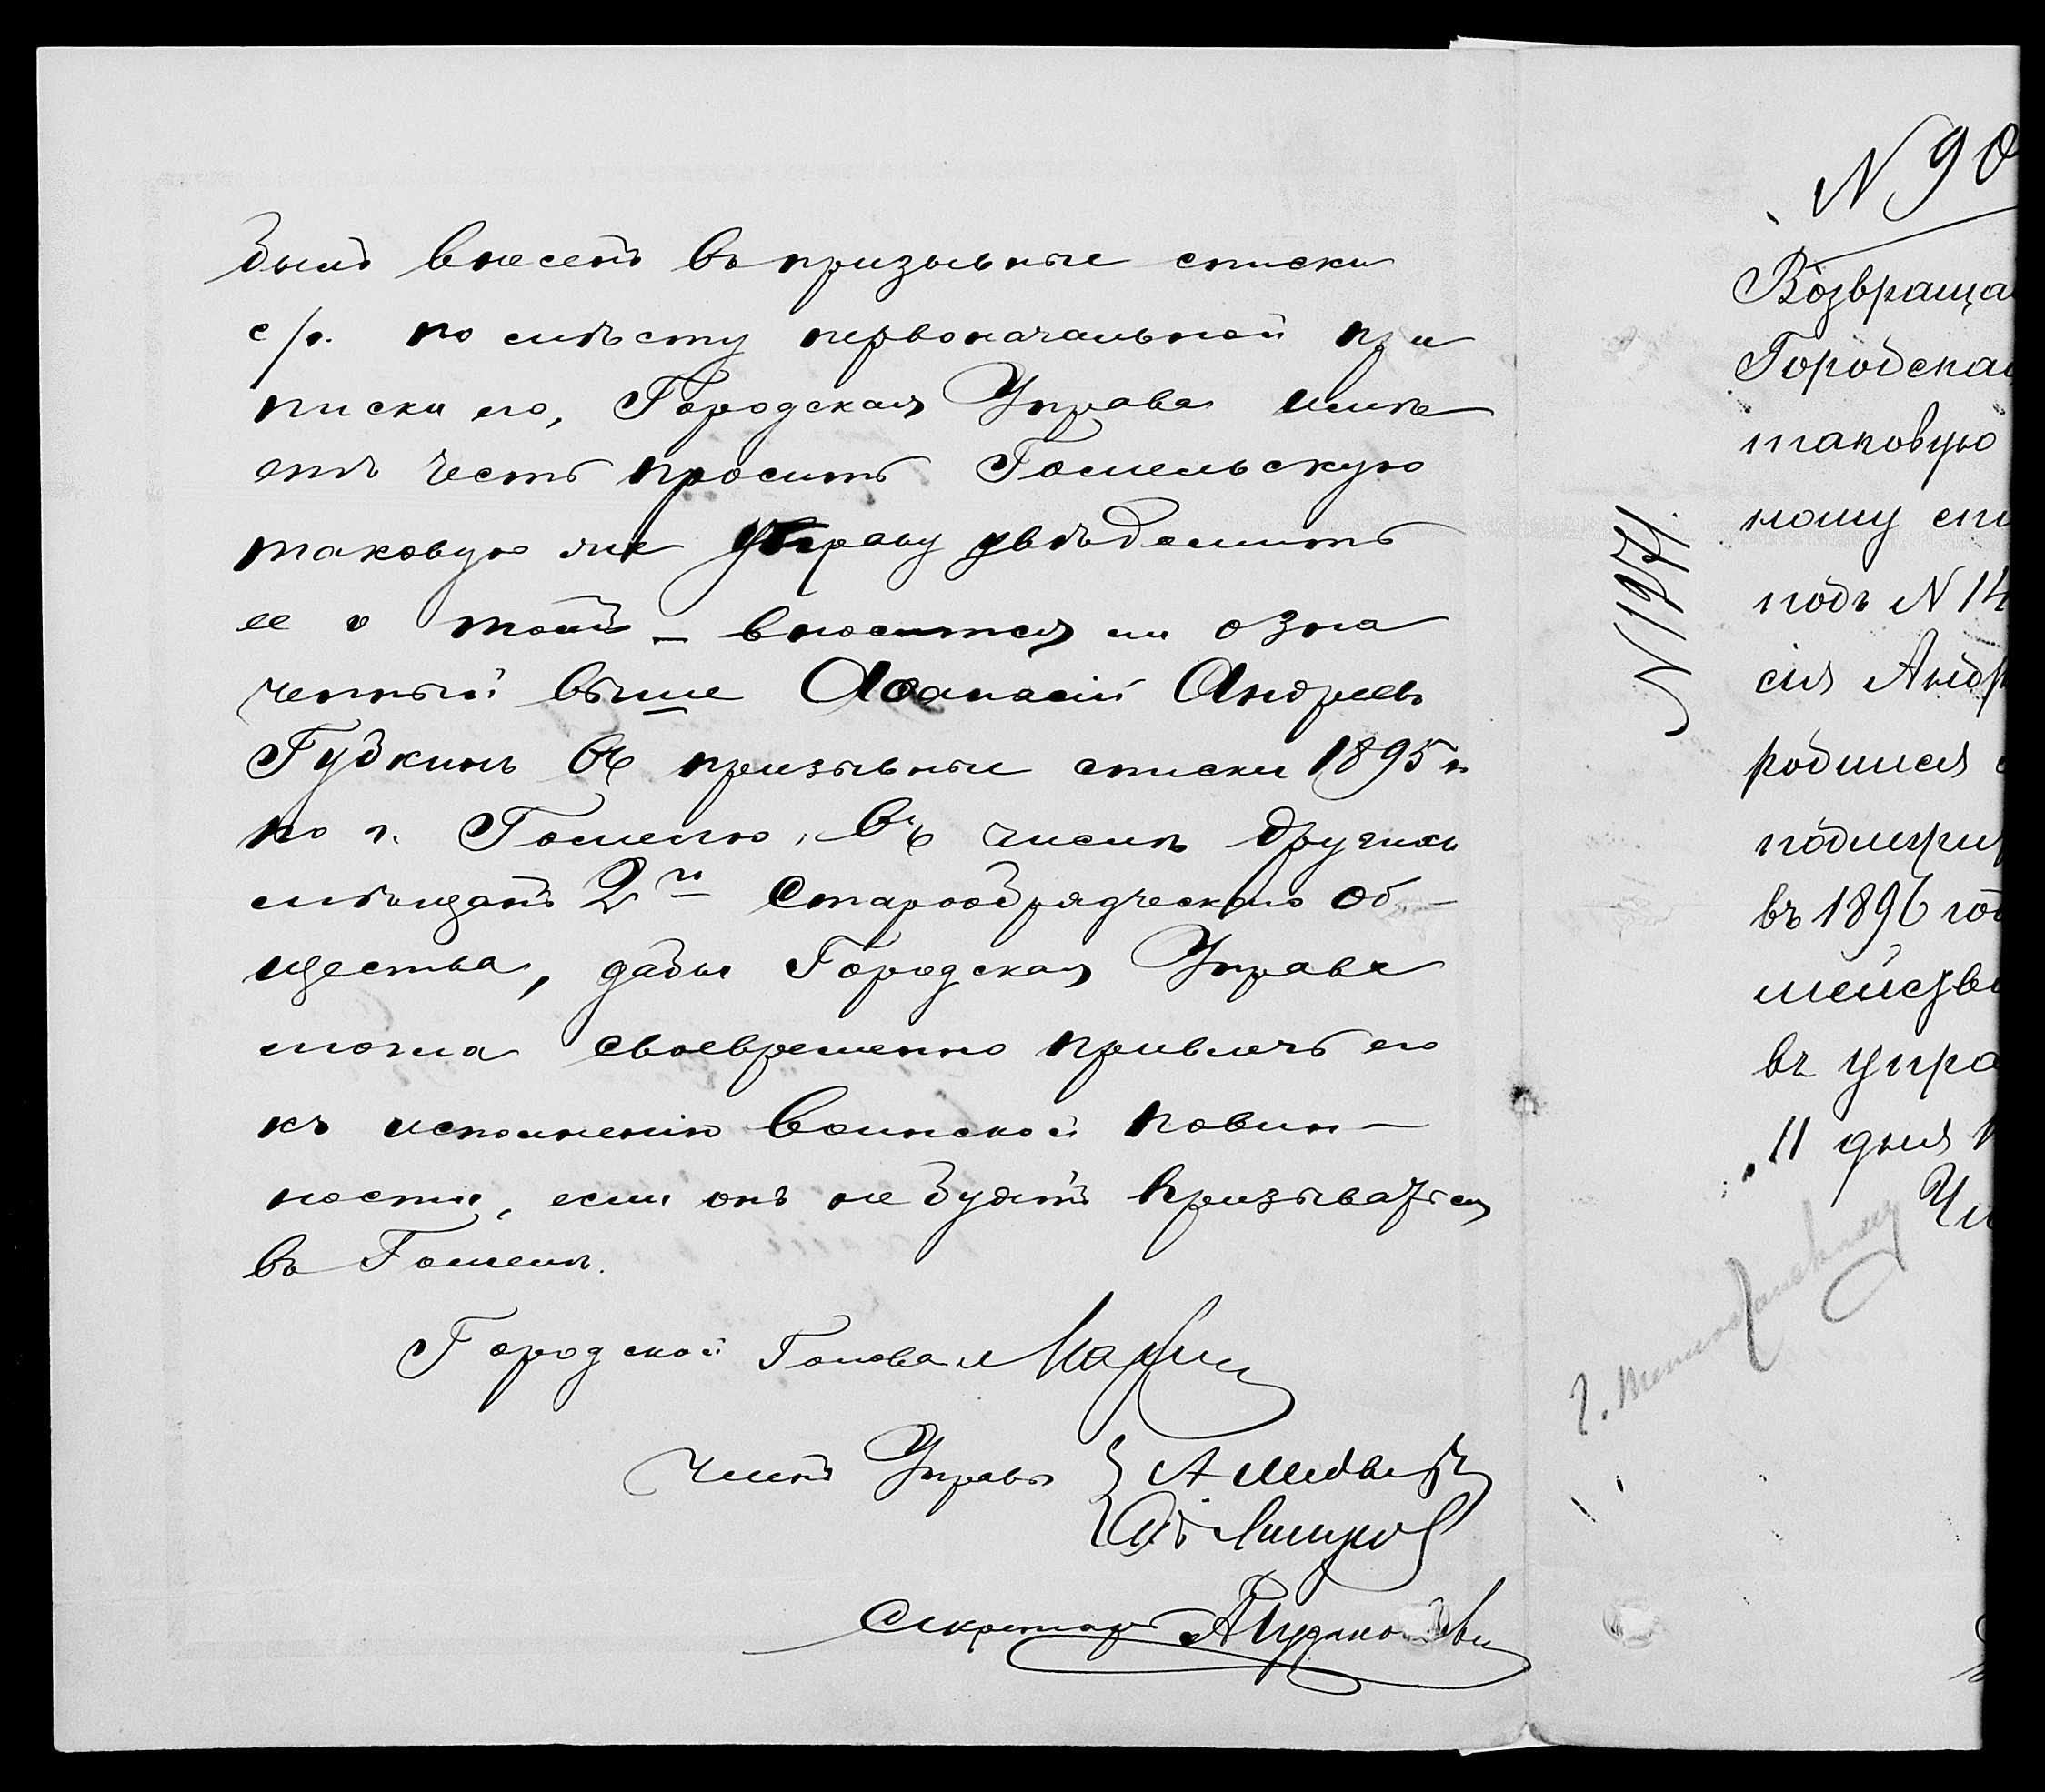 былъ внесенъ въ призывные списки
с/г. по мѣсту первоначальной при
писки его, Городская Управа имѣ
етъ честь просить Гомельскую
таковую же Управу увѣдомить
ее о томъ – вносится ли озна
ченный выше Афанасій Андреевъ
Гудкинъ въ призывные списки 1895 г.
по г. Гомелю, въ числѣ другихъ
мѣщанъ 2го Старообрядческаго об-
щества, дабы Городская Управа
могла своевременно привлечь его
къ исполненію воинской повин-
ности, если онъ не будетъ призываться
въ Гомелѣ.
Городской Голова
Члены Управы
Секретарь
N 1274.
N 90
Возвраща
Городская
таковую
ному спи
подъ N 14
сія Андр
родился
въ 1896 год
мейств
въ упра
11 дня